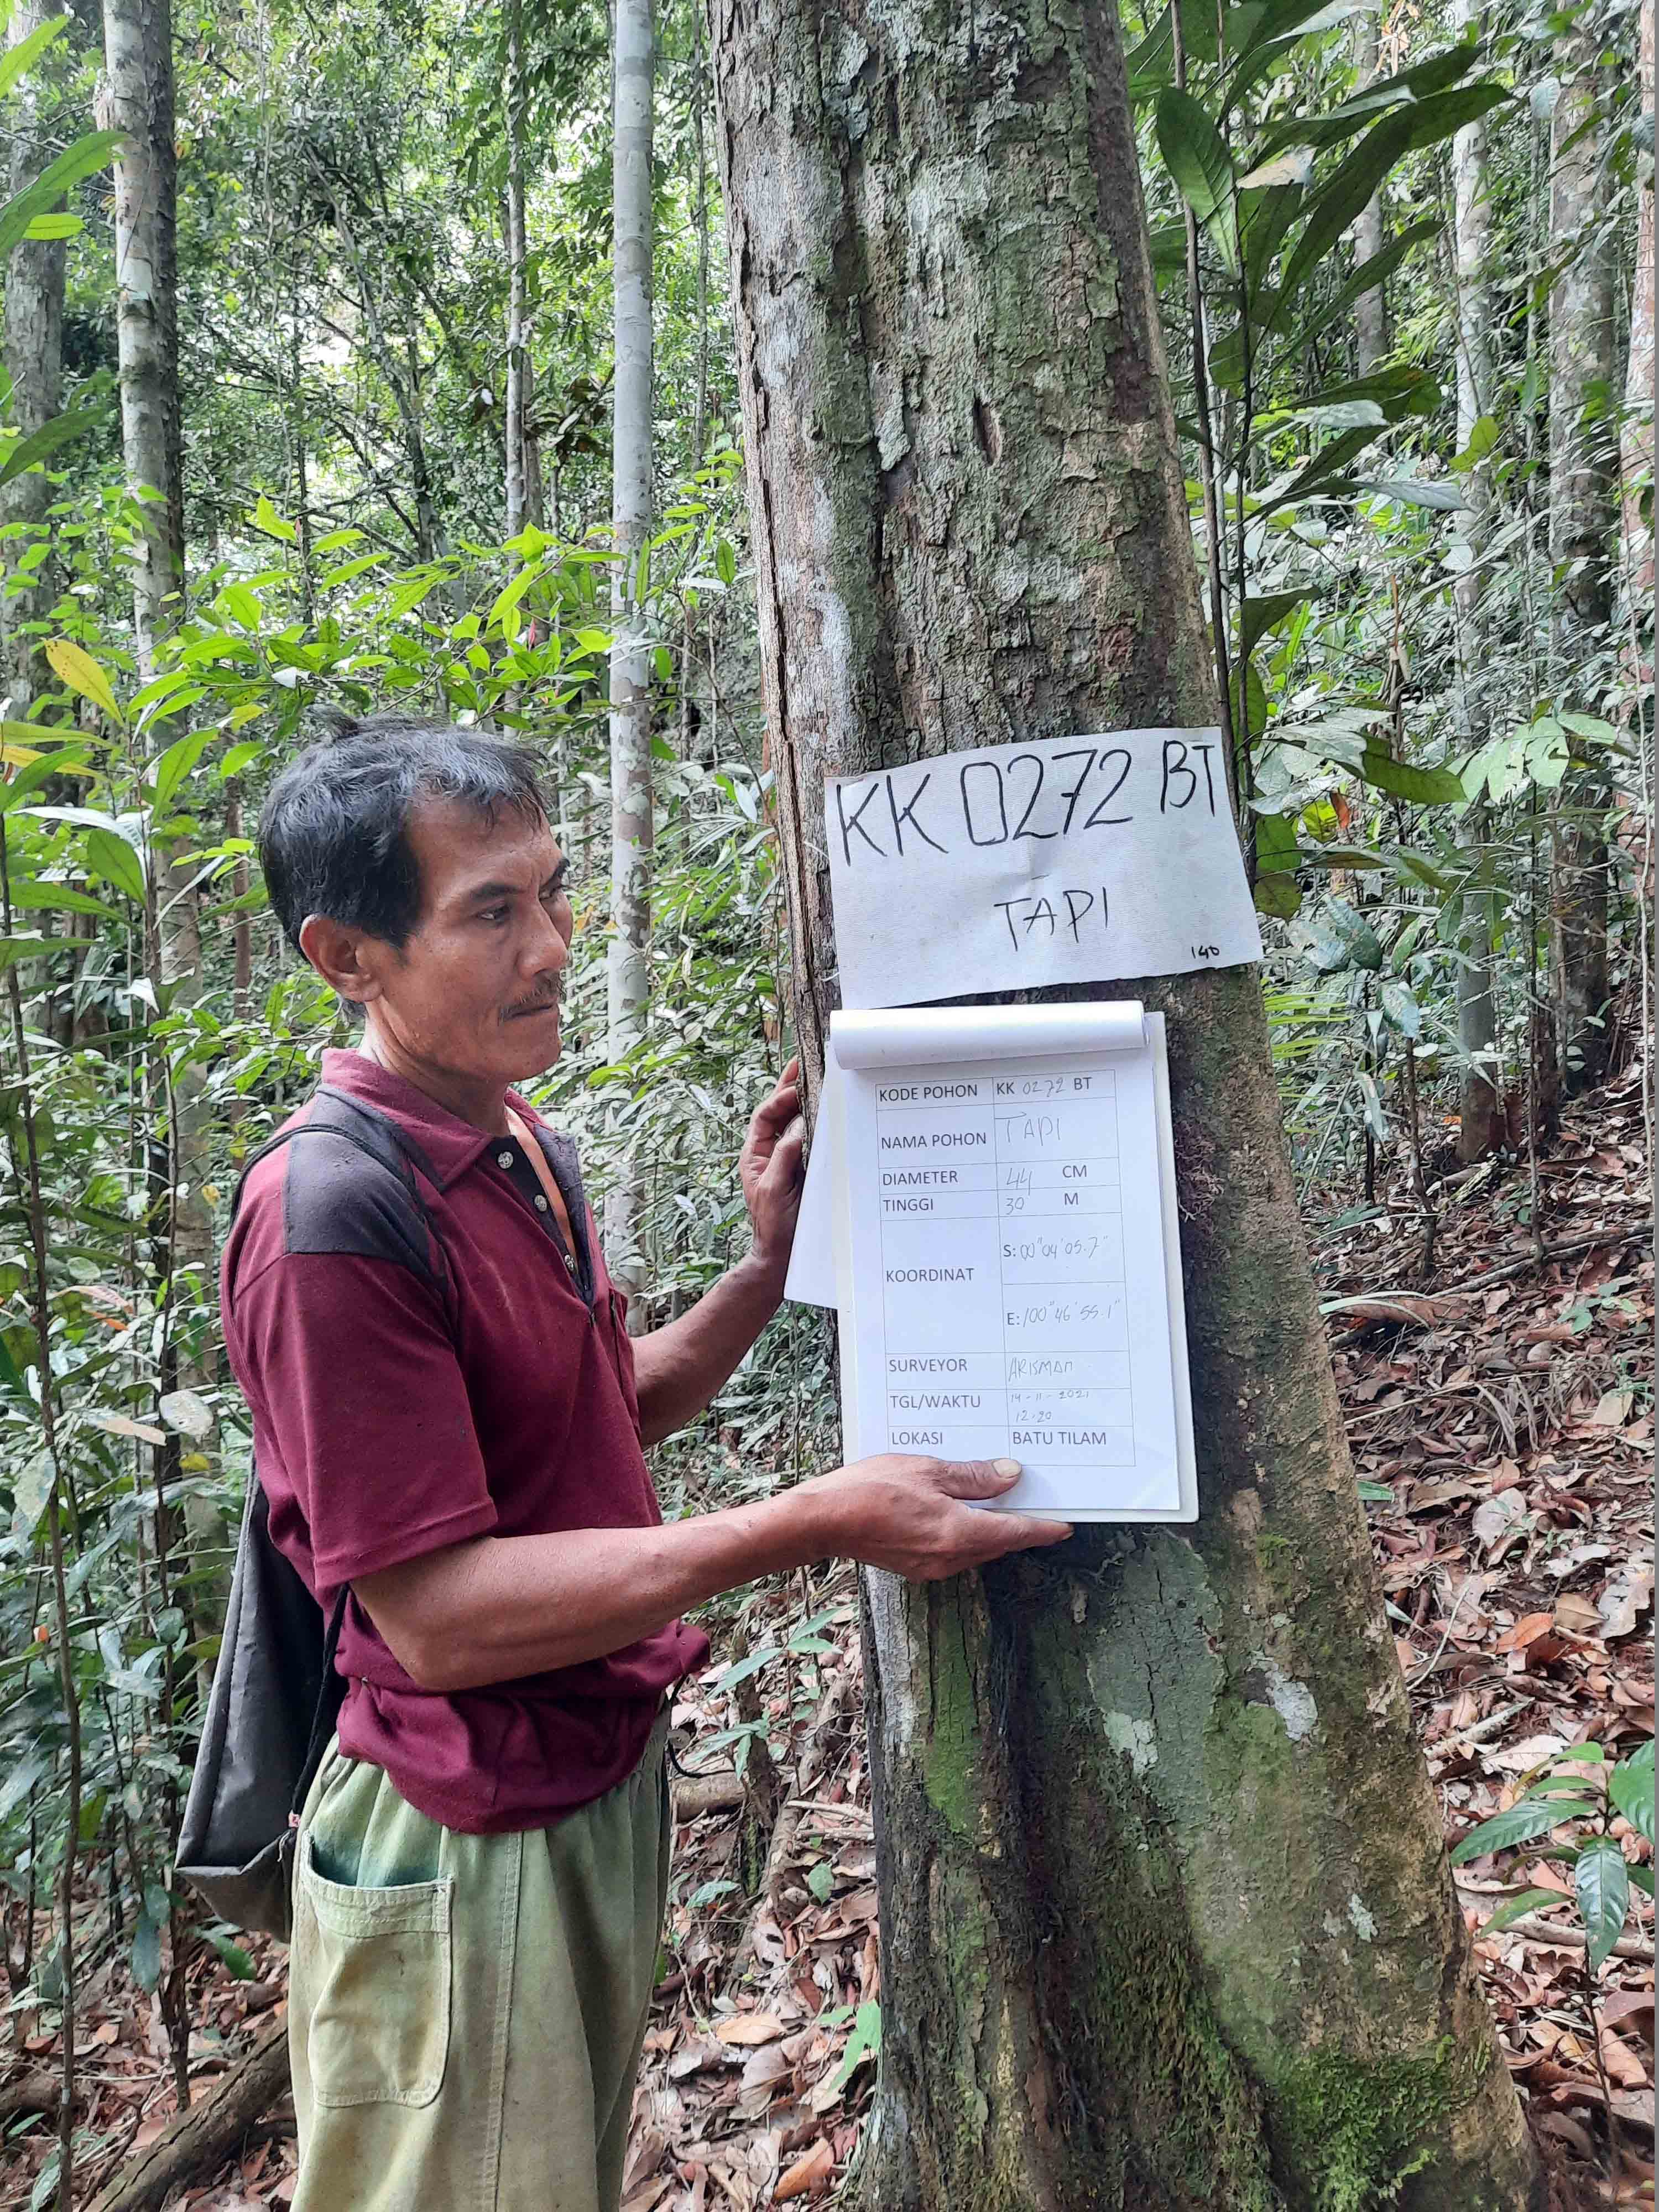 KK 0272 BT
TAPI
140
KODE POHON KK 0272 BT
NAMA POHON TAPI
DIAMETER 44 CM
TINGGI 30 M
KOORDINAT
S: 00°04'05.7"
E: 100°46'55.1"
SURVEYOR ARISMAN
TGL/WAKTU 14-11-2021
12.20
LOKASI BATU TILAM